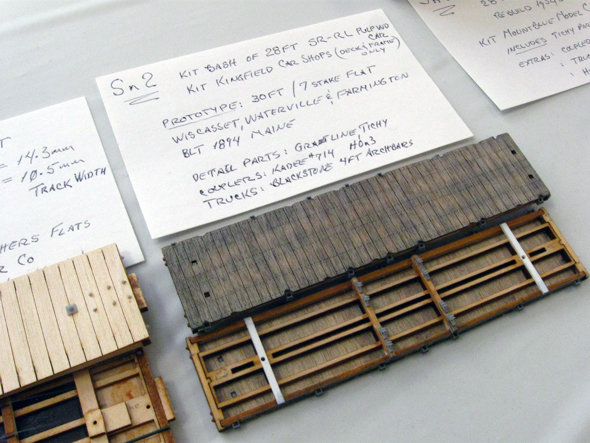 Sn2
KIT BASH OF 28FT SR-RL PULPWD CAR
KIT KINGFIELD CAR SHOPS (DECK & FRAME ONLY)
PROTOTYPE: 30FT / 7 STAKE FLAT
WISCASSET, WATERVILLE & FARMINGTON
BLT 1894 MAINE
DETAIL PARTS: GRANTLINE TICHY
COUPLERS: KADEE #714 HOn3
TRUCKS: BLACKSTONE 4FT ARCHBARS
= 14.3mm
= 10.5mm
TRACK WIDTH
FLATS
CO
28
REBUILD
KIT MOUNT BLUE MODEL C
INCLUDES TICHY
EXTRAS: COUPLER